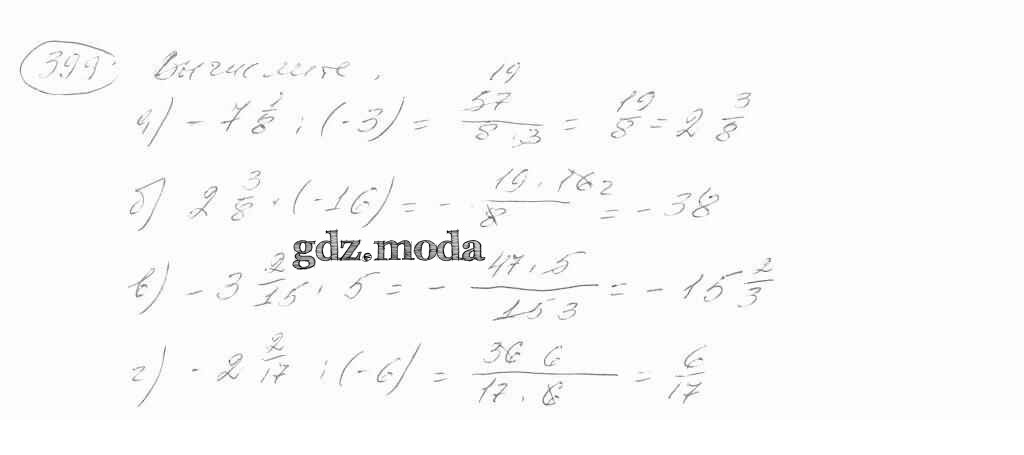 399. Вычислите.
а) - 7 1/8 : (-3) = 57 19 / 8 · 3 = 19/8 = 2 3/8
б) 2 3/8 · (-16) = - 19 · 16 2 / 8 = - 38
gdz.moda
в) - 3 2/15 · 5 = - 47 · 5 / 15 3 = - 15 2/3
г) - 2 2/17 : (-6) = 36 6 / 17 · 6 = 6/17